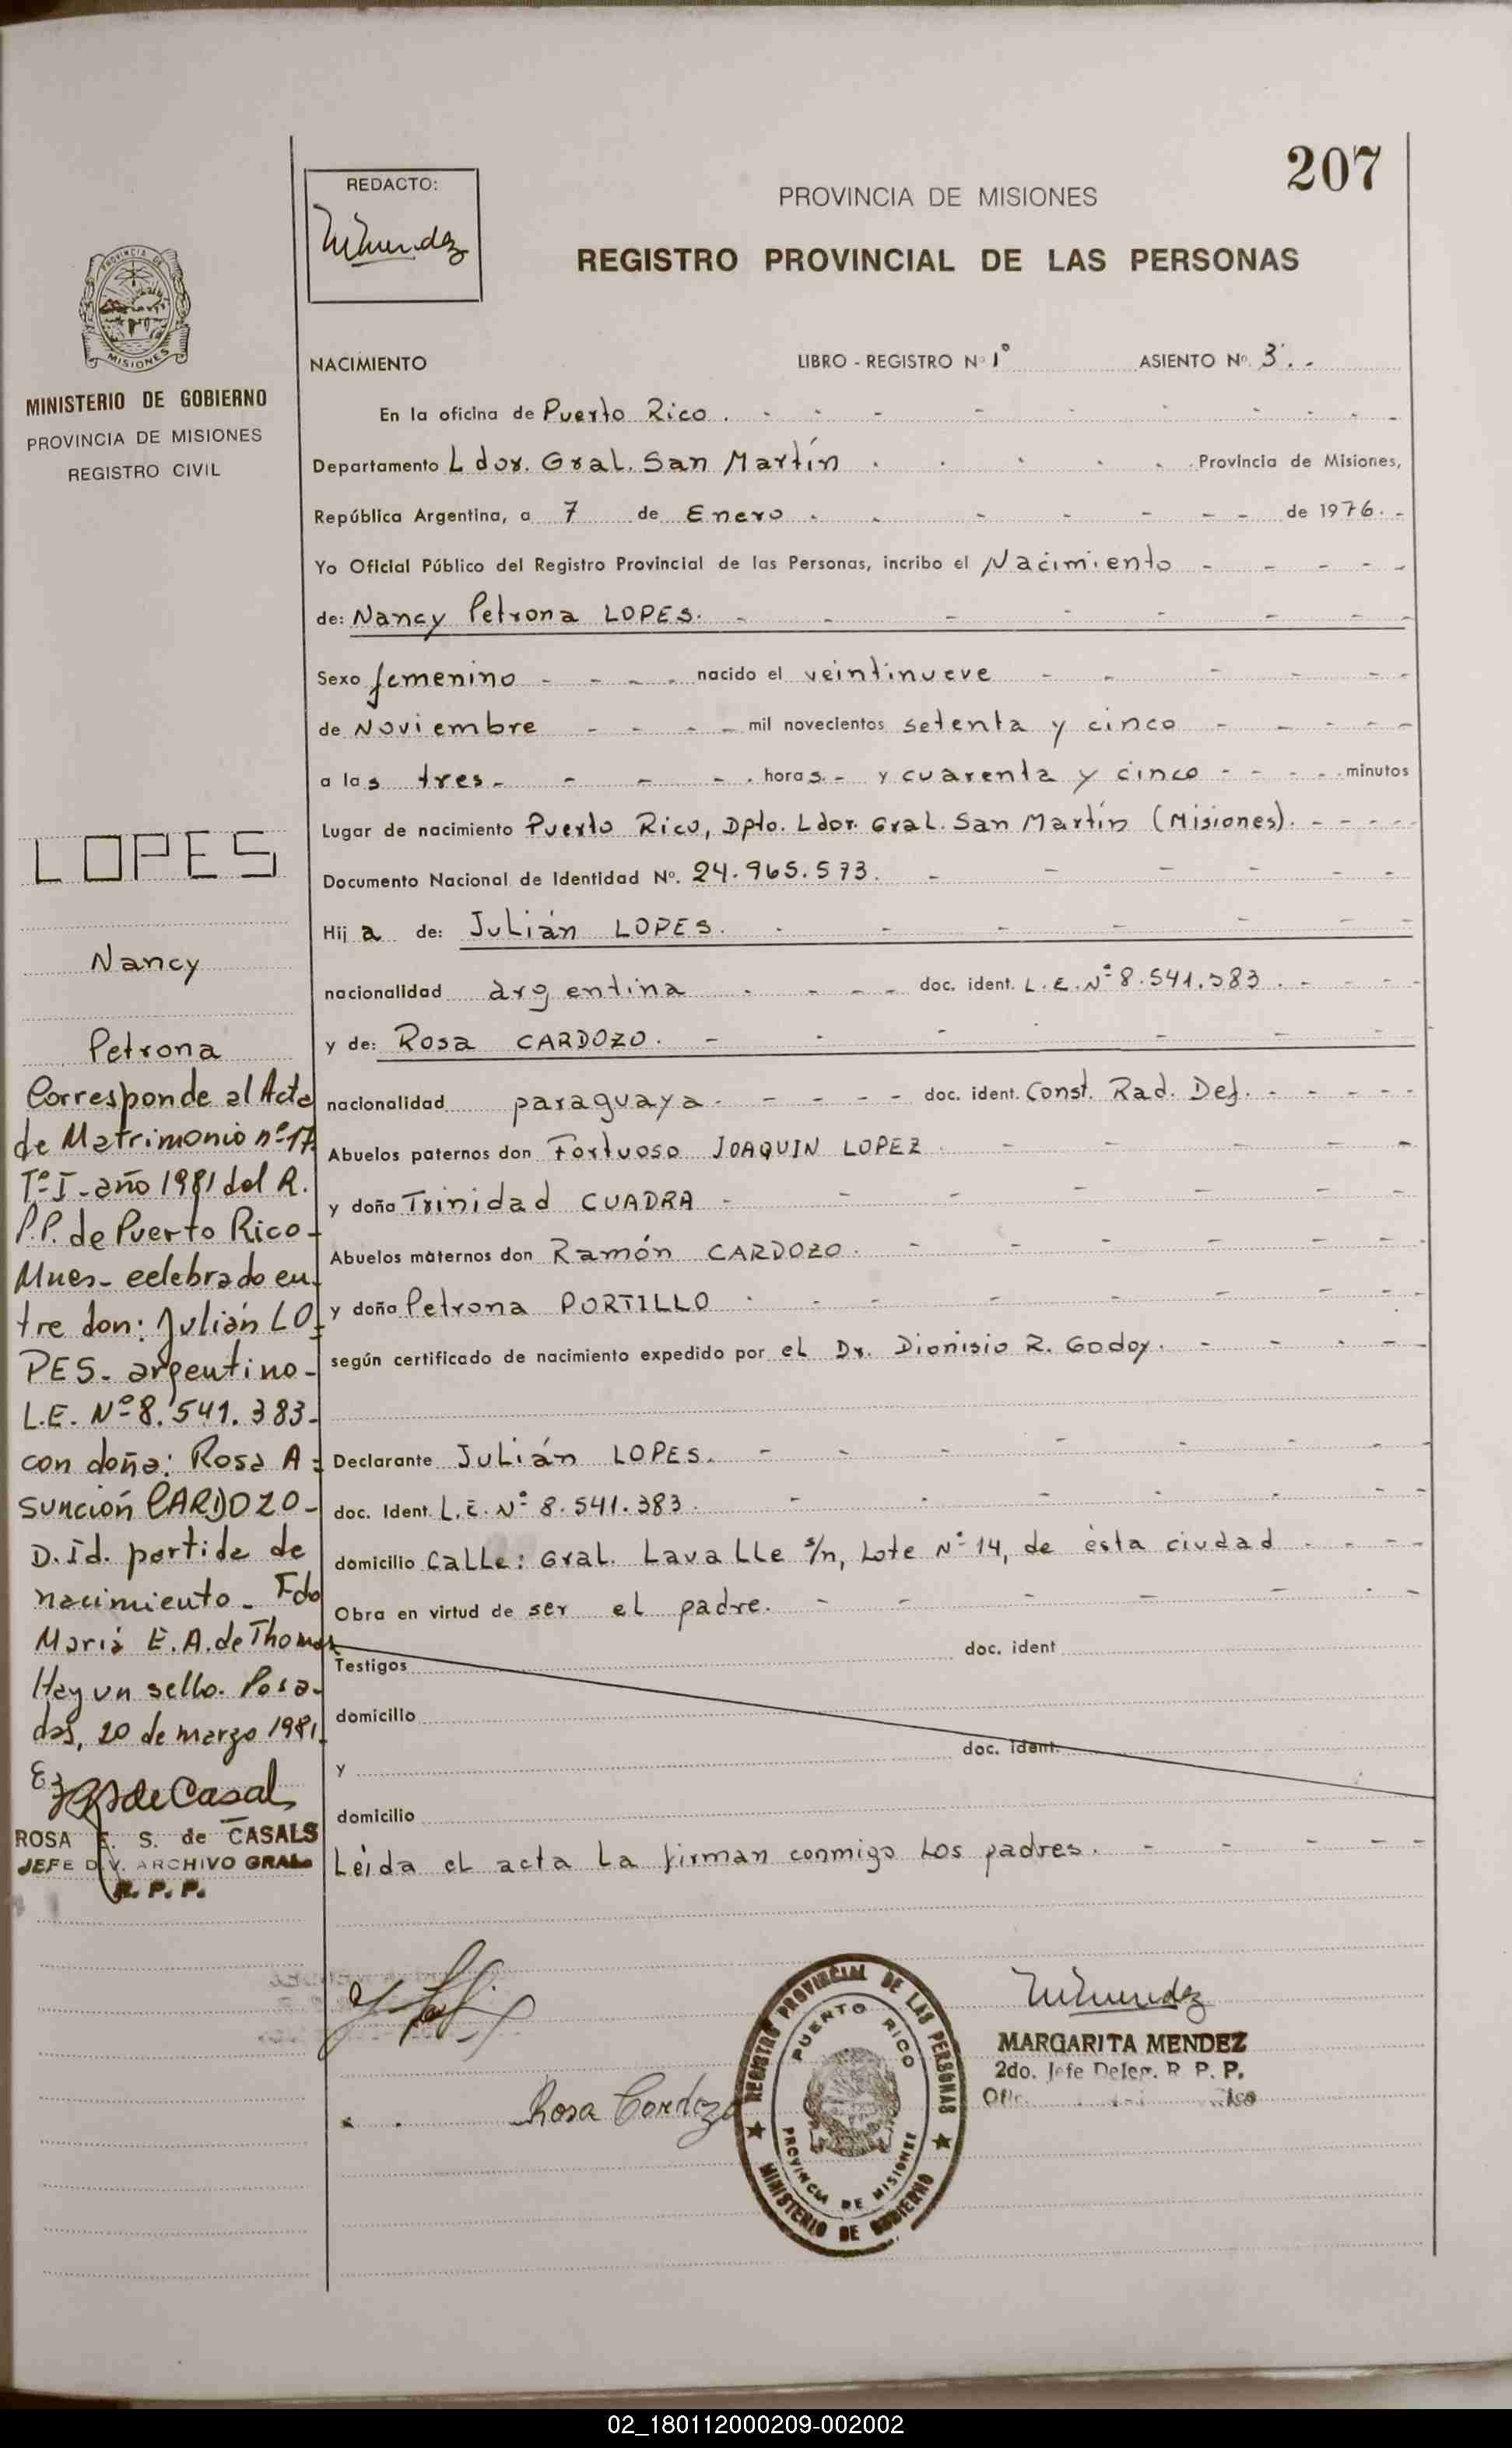 207
REDACTO:
MMendez
PROVINCIA DE MISIONES
REGISTRO PROVINCIAL DE LAS PERSONAS
PROVINCIA DE
MISIONES
MINISTERIO DE GOBIERNO
PROVINCIA DE MISIONES
REGISTRO CIVIL
NACIMIENTO LIBRO - REGISTRO Nº 1º ASIENTO Nº 3. -
En la oficina de Puerto Rico. - - - - - - - - -
Departamento Ldor. Gral. San Martín . . . . . Provincia de Misiones,
República Argentina, a 7 de Enero . - - - - - - de 1976. -
Yo Oficial Público del Registro Provincial de las Personas, incribo el Nacimiento - - - - -
de: Nancy Petrona LOPES. - - - - - - - -
Sexo femenino - - - - nacido el veintinueve - - - - - -
de Noviembre - - - - mil novecientos setenta y cinco - - - - -
a las tres - - - - . horas. - y cuarenta y cinco - - - - minutos
Lugar de nacimiento Puerto Rico, Dpto. Ldor. Gral. San Martín (Misiones). - - - - -
Documento Nacional de Identidad Nº. 24.965.573. - - - - - -
Hija de: Julián LOPES. - - - - - - -
nacionalidad argentina - - - - doc. ident. L.E. Nº 8.541.383. - - - -
y de: Rosa CARDOZO. - - - - - -
nacionalidad paraguaya - - - - - doc. ident. Const. Rad. Def. - - - - -
Abuelos paternos don Fortuoso JOAQUIN LOPEZ - - - - - -
y doña Trinidad CUADRA - - - - - - -
Abuelos maternos don Ramón CARDOZO. - - - - - - -
y doña Petrona PORTILLO - - - - - - - -
según certificado de nacimiento expedido por el Dr. Dionisio R. Godoy. - - - -
Declarante Julián LOPES. - - - - - - -
doc. Ident. L.E. Nº 8.541.383. - - - - - -
domicilio Calle: Gral. Lavalle s/n, Lote Nº 14, de ésta ciudad - - - -
Obra en virtud de ser el padre. - - - - - - -
Testigos doc. ident
domicilio
y doc. ident.
domicilio
Leída el acta la firman conmigo los padres. - - - - -
LOPES
Nancy
Petrona
Corresponde al Acta
de Matrimonio nº 17
Tº I - año 1981 del R.
P.P. de Puerto Rico -
Mnes - celebrado en-
tre don: Julián LO-
PES - argentino -
L.E. Nº 8.541.383 -
con doña: Rosa A-
sunción CARDOZO -
D. Id. partida de
nacimiento - Fdo
María E. A. de Thomas
Hay un sello. Posa-
das, 20 de marzo 1981.
de Casals
ROSA E. S. de CASALS
JEFE DIV. ARCHIVO GRAL.
R. P. P.
Rosa Cardozo
REGISTRO PROVINCIAL DE LAS PERSONAS
PUERTO RICO
PROVINCIA DE MISIONES
MINISTERIO DE GOBIERNO
MMendez
MARGARITA MENDEZ
2do. Jefe Deleg. R. P. P.
02_180112000209-002002